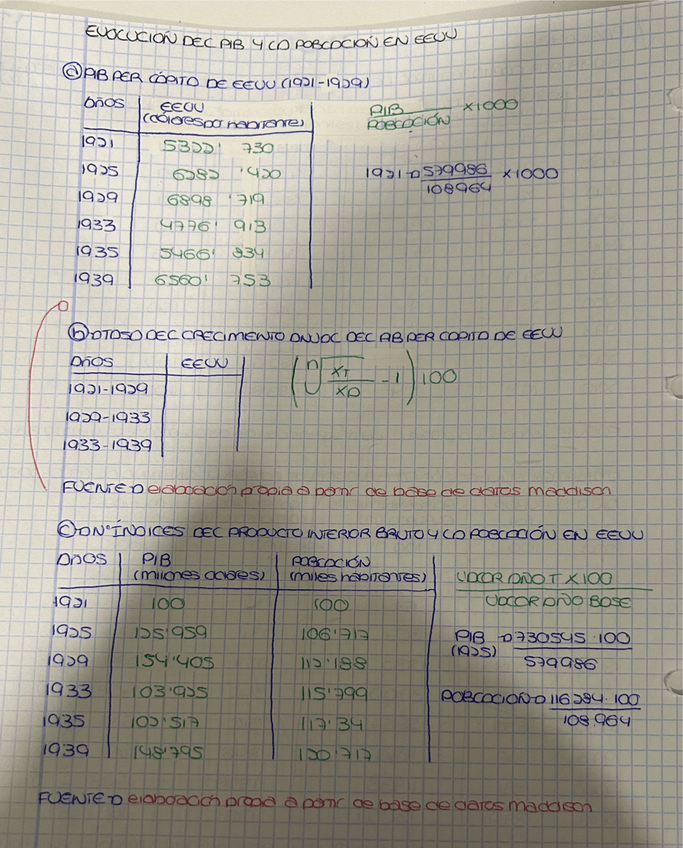 EVOLUCIÓN DEL PIB Y LA POBLACIÓN EN EEUU
a) PIB PER CÁPITA DE EEUU (1921-1929)
AÑOS EEUU (dólares por habitante)
PIB / POBLACIÓN × 1000
1921 5322' 730
1925 6282 '420
1921 → 579986 / 108964 × 1000
1929 6898 '719
1933 4776' 913
1935 5466' 834
1939 6560' 753
b) TASAS DEL CRECIMIENTO ANUAL DEL PIB PER CÁPITA DE EEUU
AÑOS EEUU
(n√XT/X0 - 1) 100
1921-1929
1929-1933
1933-1939
FUENTE → elaboración propia a partir de base de datos maddison
c) Nos ÍNDICES DEL PRODUCTO INTERIOR BRUTO Y LA POBLACIÓN EN EEUU
AÑOS PIB (millones dólares) POBLACIÓN (miles habitantes)
VALOR AÑO T × 100 / VALOR AÑO BASE
1921 100 100
1925 125'959 106'717
PIB (1925) → 730545 · 100 / 579986
1929 154'405 112'188
1933 103'925 115'799
POBLACIÓN → 116284 · 100 / 108.964
1935 117'34
1939 148'795 120'717
FUENTE → elaboración propia a partir de base de datos maddison